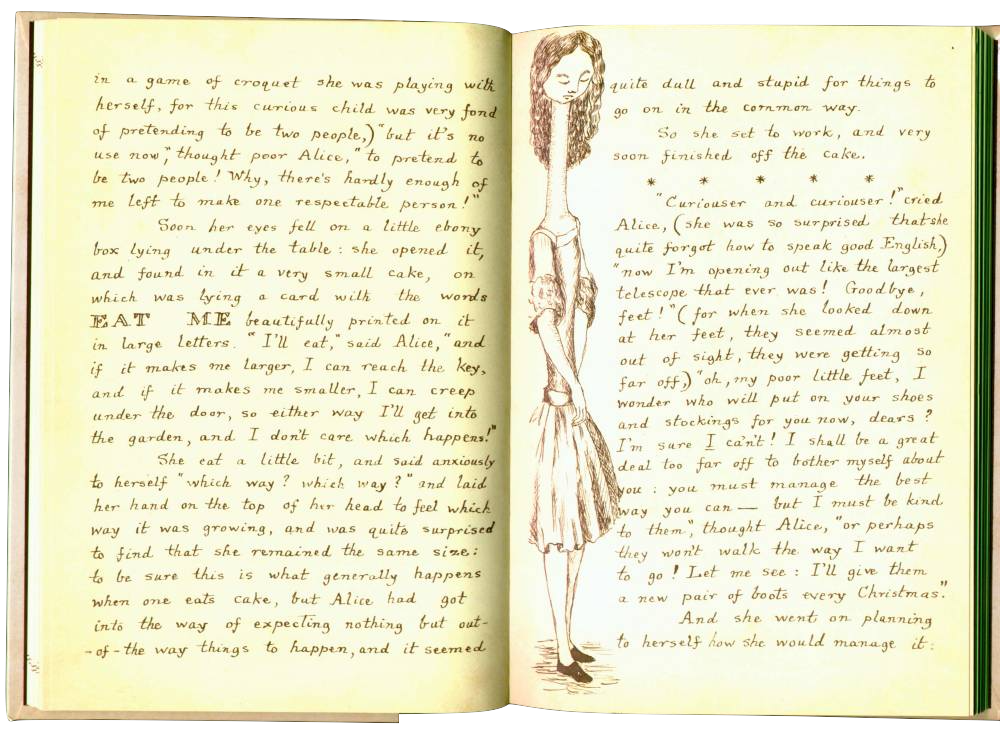 in a game of croquet she was playing with
herself, for this curious child was very fond
of pretending to be two people,) "but it's no
use now," thought poor Alice, "to pretend to
be two people! Why, there's hardly enough of
me left to make one respectable person!"
Soon her eyes fell on a little ebony
box lying under the table: she opened it,
and found in it a very small cake, on
which was lying a card with the words
EAT ME beautifully printed on it
in large letters. "I'll eat," said Alice, "and
if it makes me larger, I can reach the key,
and if it makes me smaller, I can creep
under the door, so either way I'll get into
the garden, and I don't care which happens!"
She eat a little bit, and said anxiously
to herself "which way? which way?" and laid
her hand on the top of her head to feel which
way it was growing, and was quite surprised
to find that she remained the same size:
to be sure this is what generally happens
when one eats cake, but Alice had got
into the way of expecting nothing but out-
-of-the way things to happen, and it seemed
quite dull and stupid for things to
go on in the common way.
So she set to work, and very
soon finished off the cake.
* * * * *
"Curiouser and curiouser!" cried
Alice, (she was so surprised that she
quite forgot how to speak good English,)
"now I'm opening out like the largest
telescope that ever was! Goodbye,
feet!" (for when she looked down
at her feet, they seemed almost
out of sight, they were getting so
far off,) "oh, my poor little feet, I
wonder who will put on your shoes
and stockings for you now, dears?
I'm sure I can't! I shall be a great
deal too far off to bother myself about
you: you must manage the best
way you can — but I must be kind
to them", thought Alice, "or perhaps
they won't walk the way I want
to go! Let me see: I'll give them
a new pair of boots every Christmas."
And she went on planning
to herself how she would manage it: